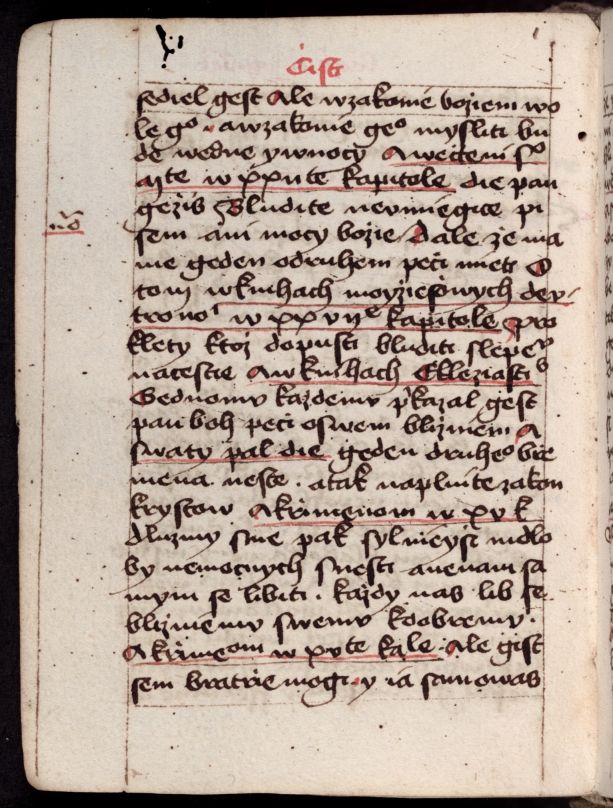 Cist
sediel gest Ale wzakonie boziem wo
le g° . awzakonie ge° mysliti bu
de wedne ywnocy Aweczteni s°
mte w xxii te kapitole die pan
gezis Bludite nevmiegice pi
sem ani mocy bozie Dale ze ma
me geden odruhem peči mieti O
tom wknihach moyziesowych dey-
trono¹ w xxvii° kapitole pro
klety ktoz dopusti bluditi slepe°
nacestie Awknihach Elleziasti
Gednomv kazdemv p'kazal gest
pan boh peči oswem bliznem A
swaty pal die geden druhe° brie
mena neste . atak naplnite zakon
krystow Akrimenom w xv k
dluzmy sme pak sylnieysi mdlo
by nemocnych snesti anenam sa
mym se libiti . kazdy nas lib se
bliznemv swemv kdobremv .
Akrimeom w xv te kale . Ale gist
sem bratrie mogi . y ia sam owas